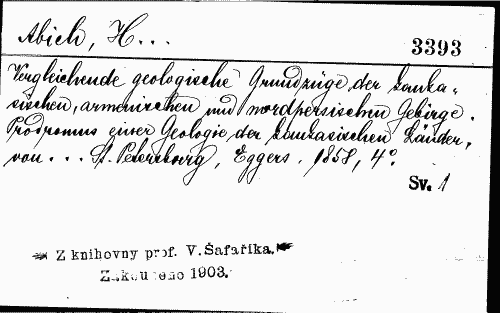 Abich, H...
3393
Vergleichende geologische Grundzüge der kauka-
sischen, armenischen und nordpersischen Gebirge.
Prodromus einer Geologie der kaukasischen Länder,
von... St. Petersburg, Eggers. 1858, 4°.
Sv. 1
Z knihovny prof. V. Šafaříka.
Zakoupeno 1903.